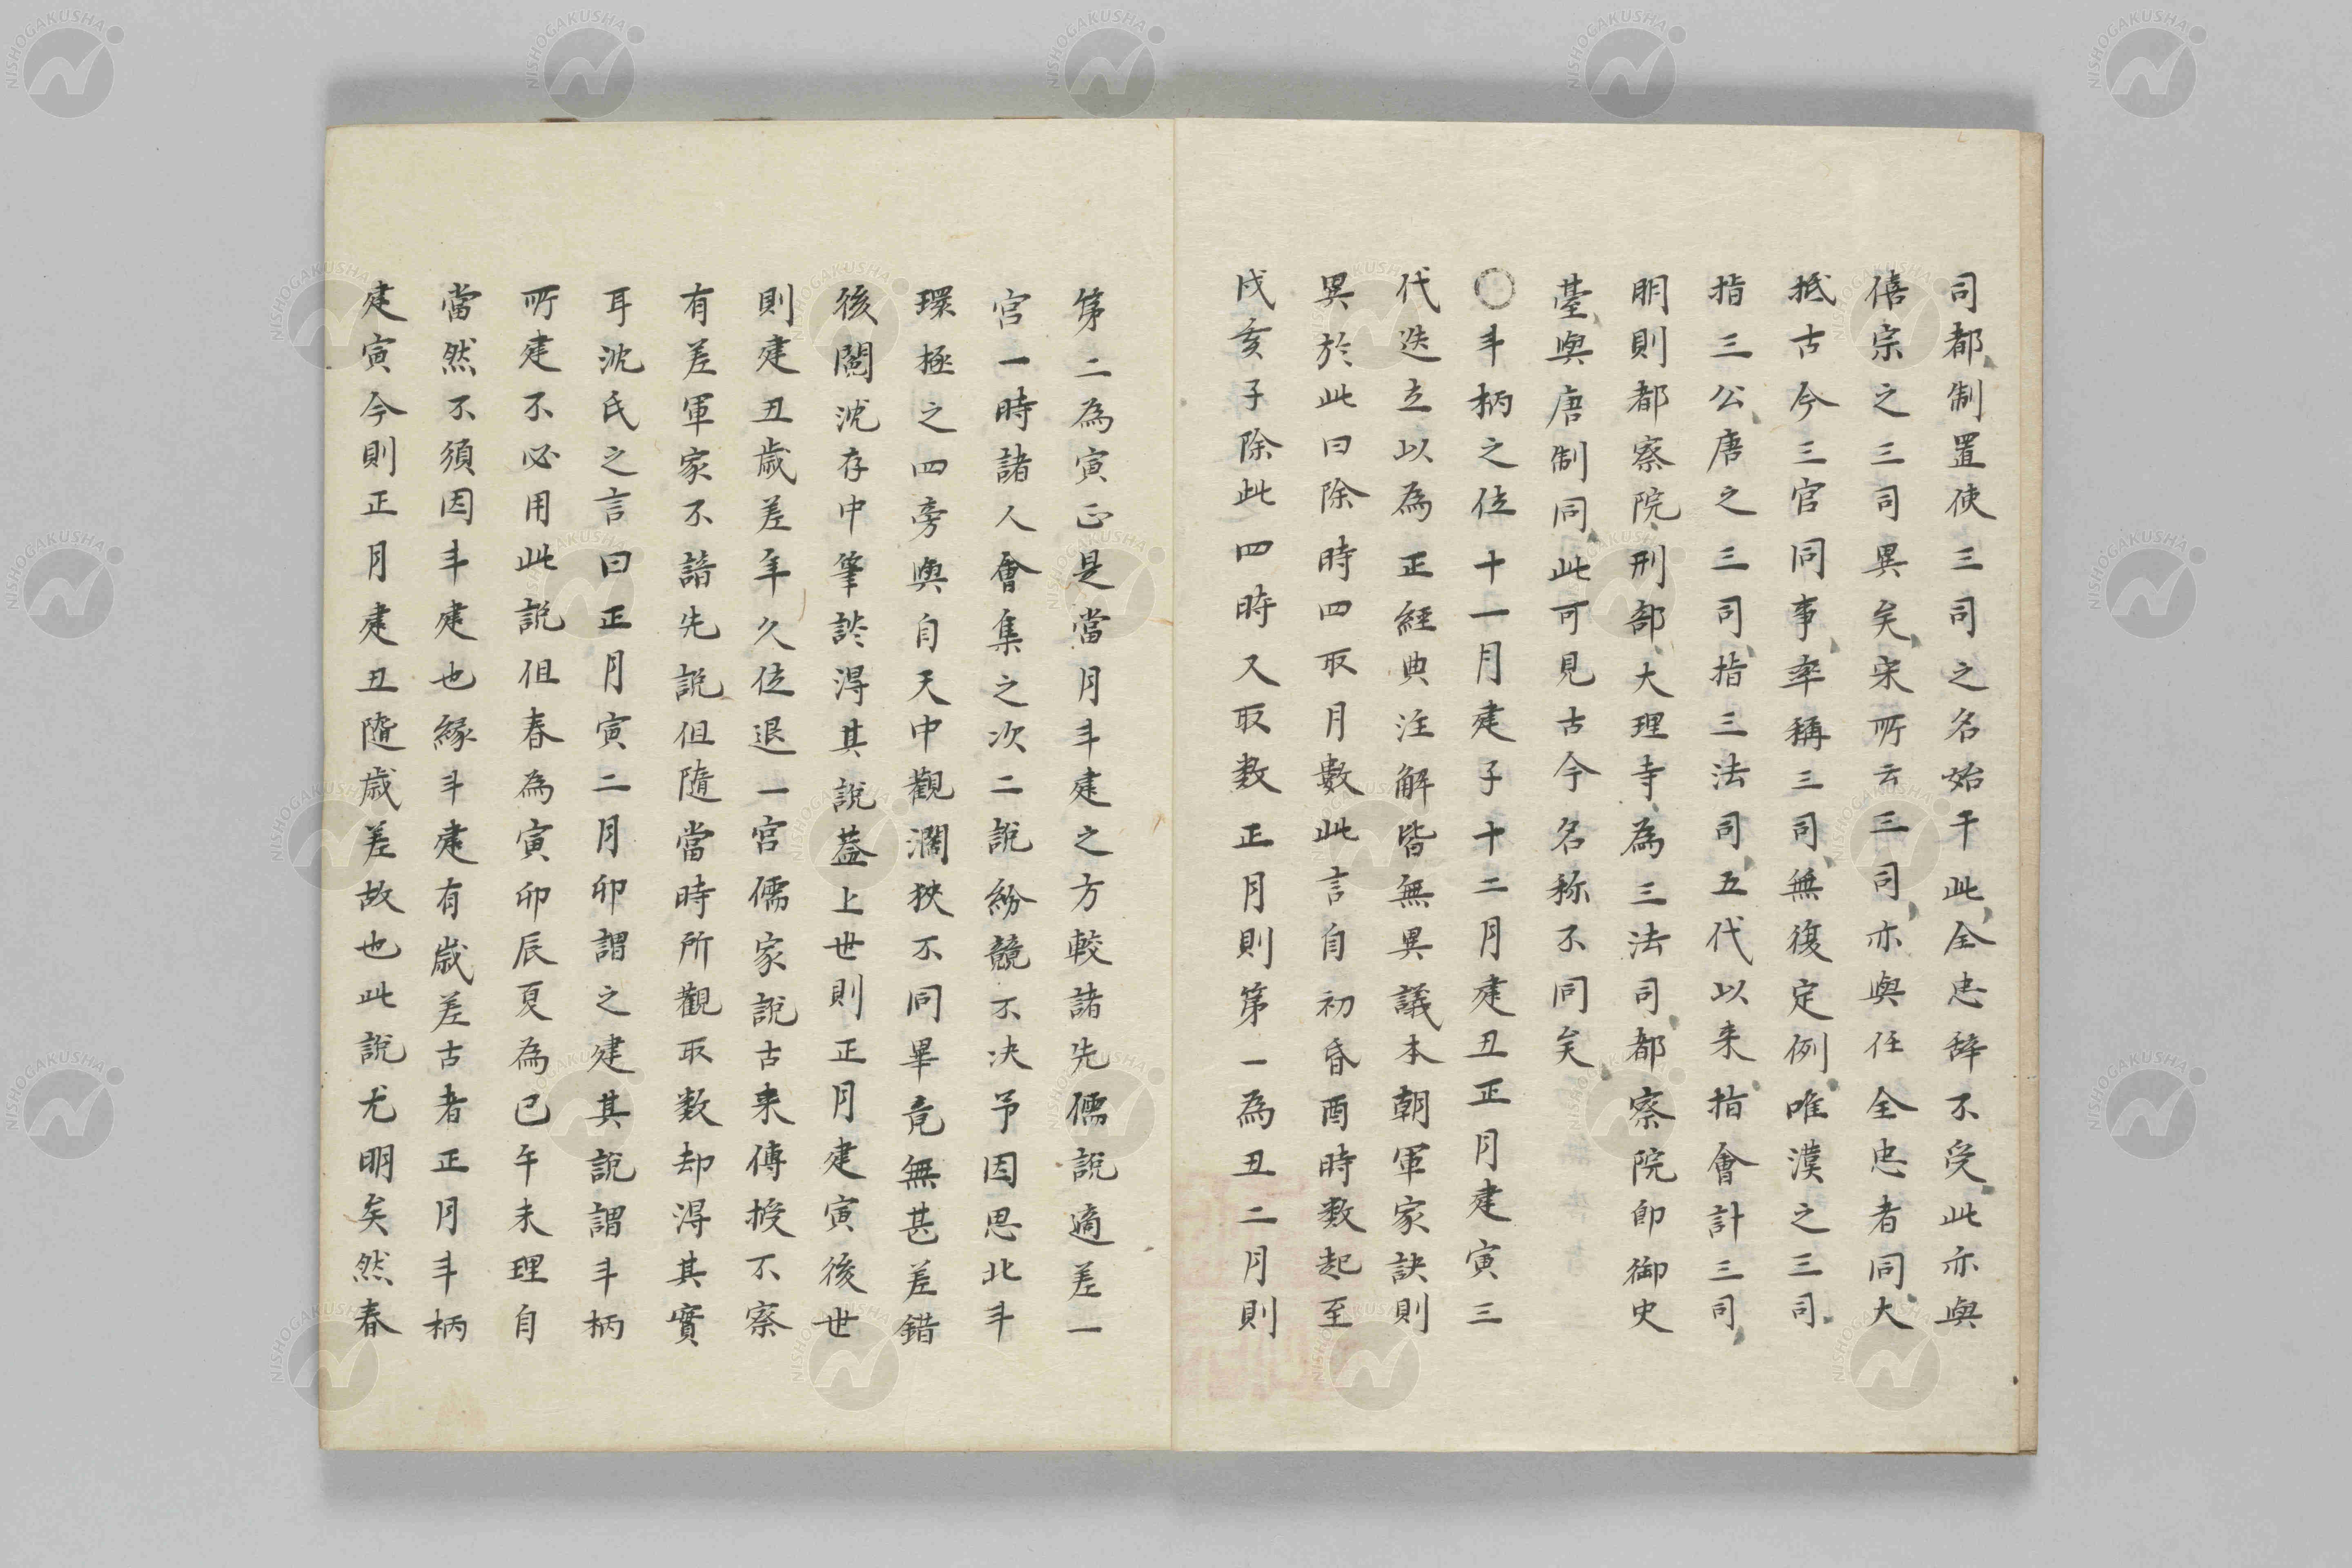 司都制置使三司之名始于此全忠辞不受此亦與
僖宗之三司異矣宋所云三司亦與任全忠者同大
抵古今三官同事率稱三司無復定例唯漢之三司
指三公唐之三司指三法司五代以来指會計三司
明則都察院刑部大理寺為三法司都察院即御史
臺與唐制同此可見古今名称不同矣
○斗柄之位十一月建子十二月建丑正月建寅三
代迭立以為正経典注解皆無異議本朝軍家訣則
異於此曰除時四取月數此言自初昏酉時数起至
戌亥子除此四時又取数正月則第一為丑二月則
第二為寅正是當月斗建之方較諸先儒說適差一
宮一時諸人會集之次二說紛競不決予因思北斗
環極之四旁與自天中觀濶狹不同畢竟無甚差錯
後閱沈存中筆談得其說蓋上世則正月建寅後世
則建丑歳差年久位退一宮儒家說古来傳授不察
有差軍家不諳先說但隨當時所觀取数却得其實
耳沈氏之言曰正月寅二月卯謂之建其說謂斗柄
所建不必用此說但春為寅卯辰夏為巳午未理自
當然不須因斗建也縁斗建有歳差古者正月斗柄
建寅今則正月建丑隨歳差故也此說尤明矣然春
NISHOGAKUSHA